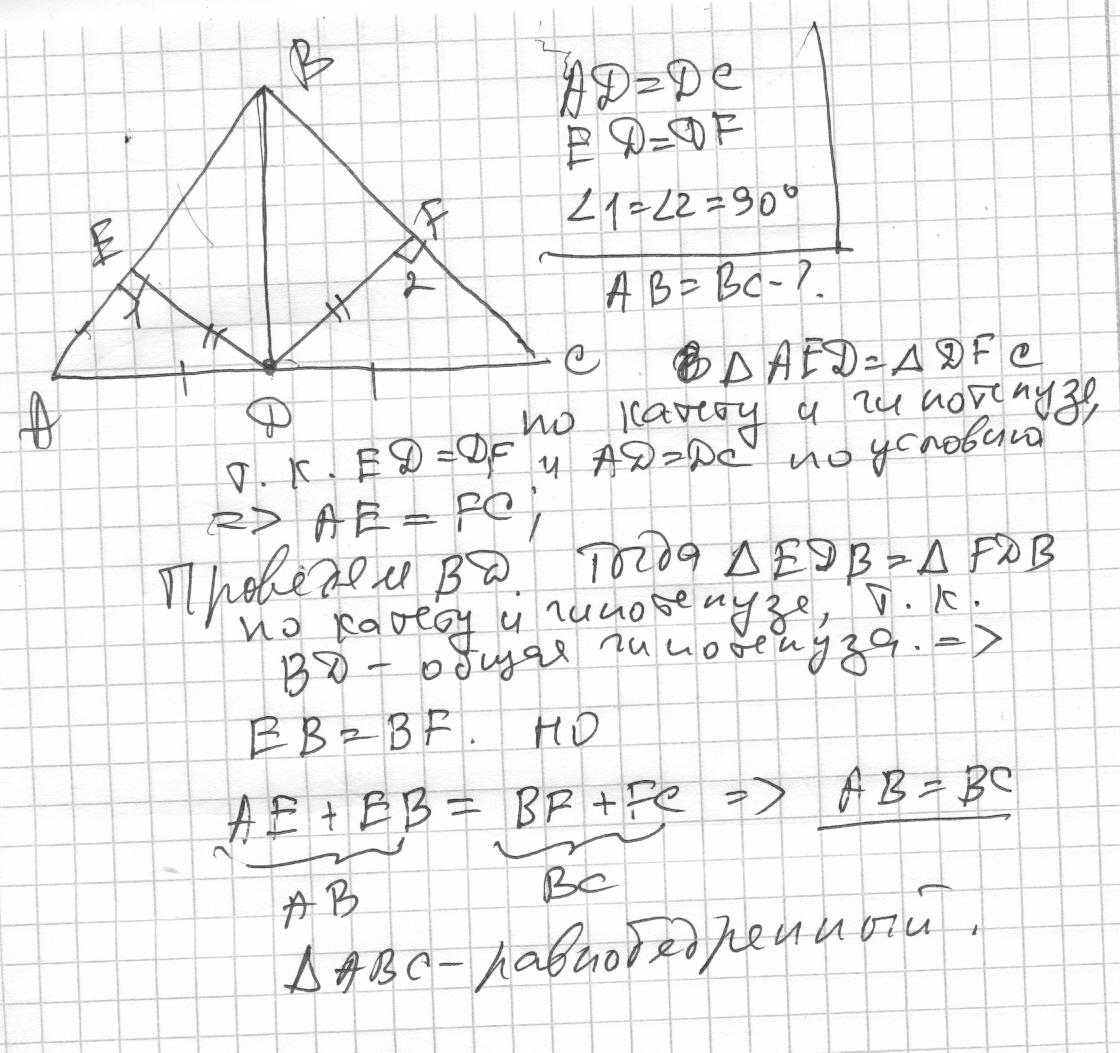 B
E
F
1
2
A
D
C
AD=DC
ED=DF
∠1=∠2=90°
AB=BC-?
В ΔAED=ΔDFC
по катету и гипотенузе,
т.к. ED=DF и AD=DC по условию
=> AE=FC;
Проведем BD. Тогда ΔEDB=ΔFDB
по катету и гипотенузе, т.к.
BD - общая гипотенуза. =>
EB=BF. но
AE+EB=BF+FC => AB=BC
AB
BC
ΔABC - равнобедренный.